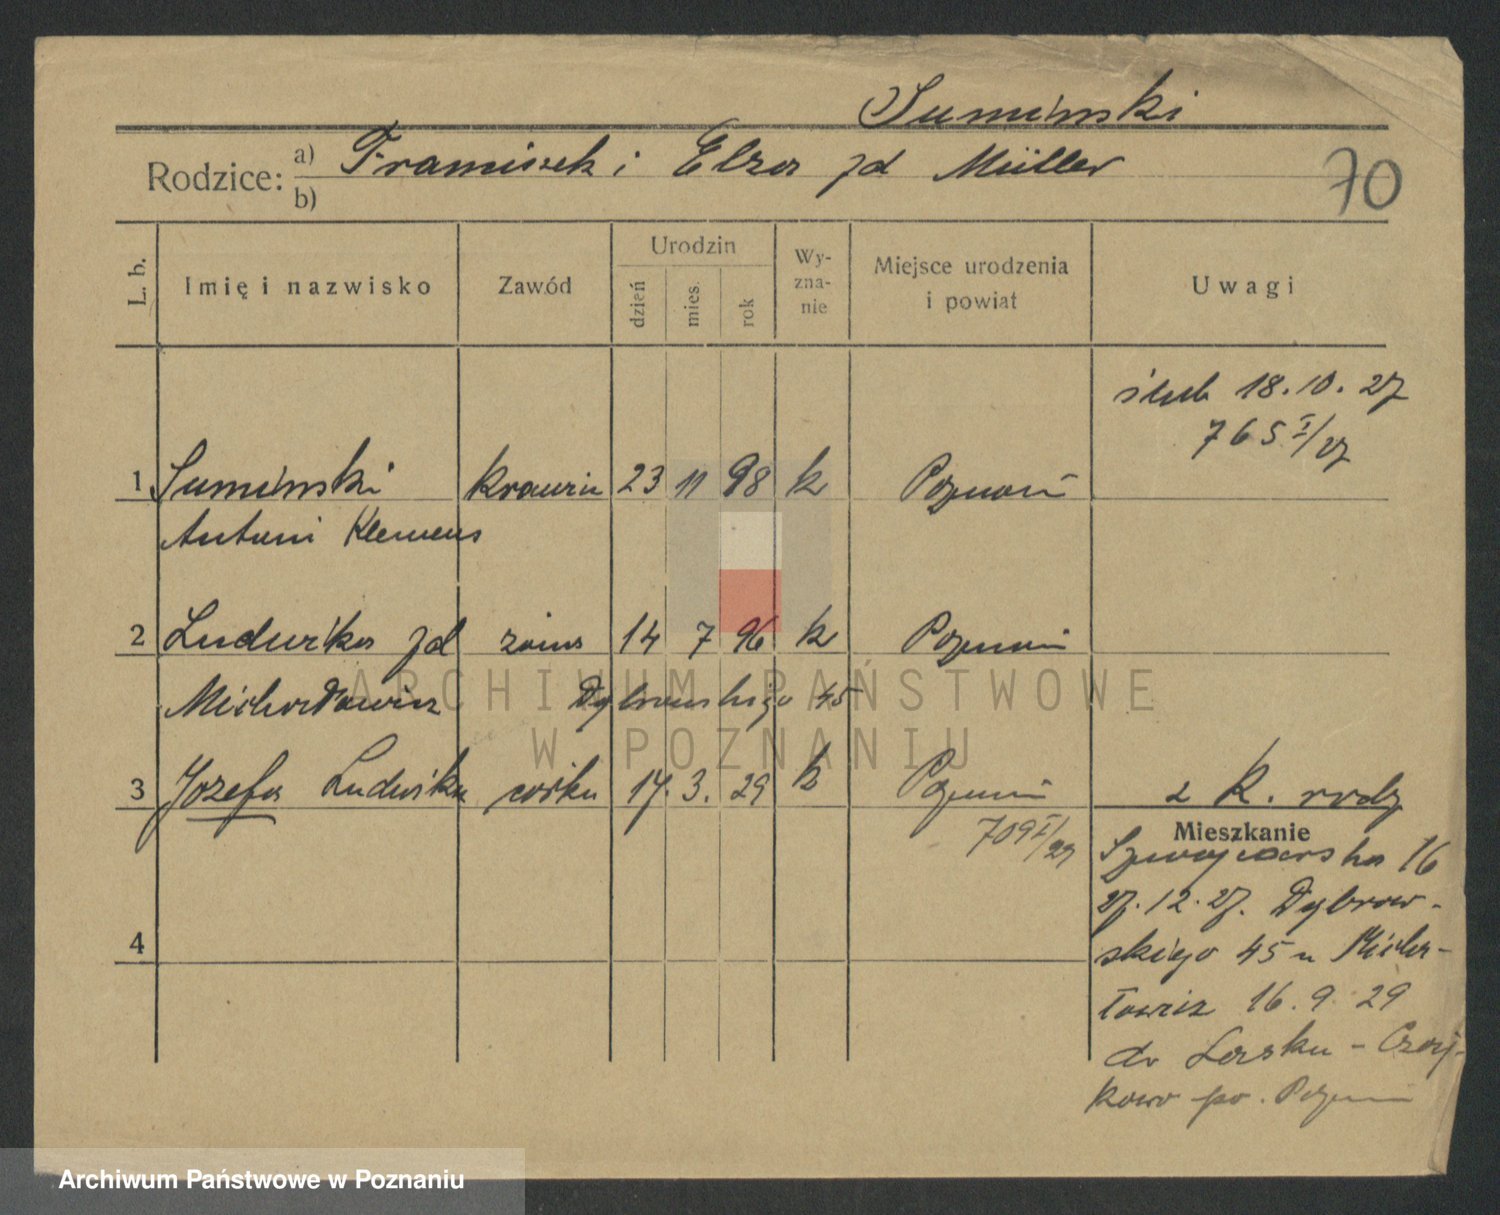 Sumiński
Rodzice: a) Franciszek i Elza zd Müller
b)
70
L. b.
Imię i nazwisko
Zawód
Urodzin
dzień
mies.
rok
Wy-
zna-
nie
Miejsce urodzenia
i powiat
Uwagi
ślub 18.10.27
765 I/27
1 Sumiński krawiec 23 11 98 k Poznań
Antoni Klemens
2 Ludwika zd żona 14 7 96 k Poznań
Michałowicz Dąbrowskiego 45
3 Józefa Ludwika córka 17. 3. 29 k Poznań
709 I/29
z K. rodz
Mieszkanie
Szwajcarska 16
27.12.27. Dąbrow-
skiego 45 u Micha-
łowicz 16.9.29
do Lasku - Czaj-
kowo po. Poznań
4
ARCHIWUM PAŃSTWOWE
W POZNANIU
Archiwum Państwowe w Poznaniu